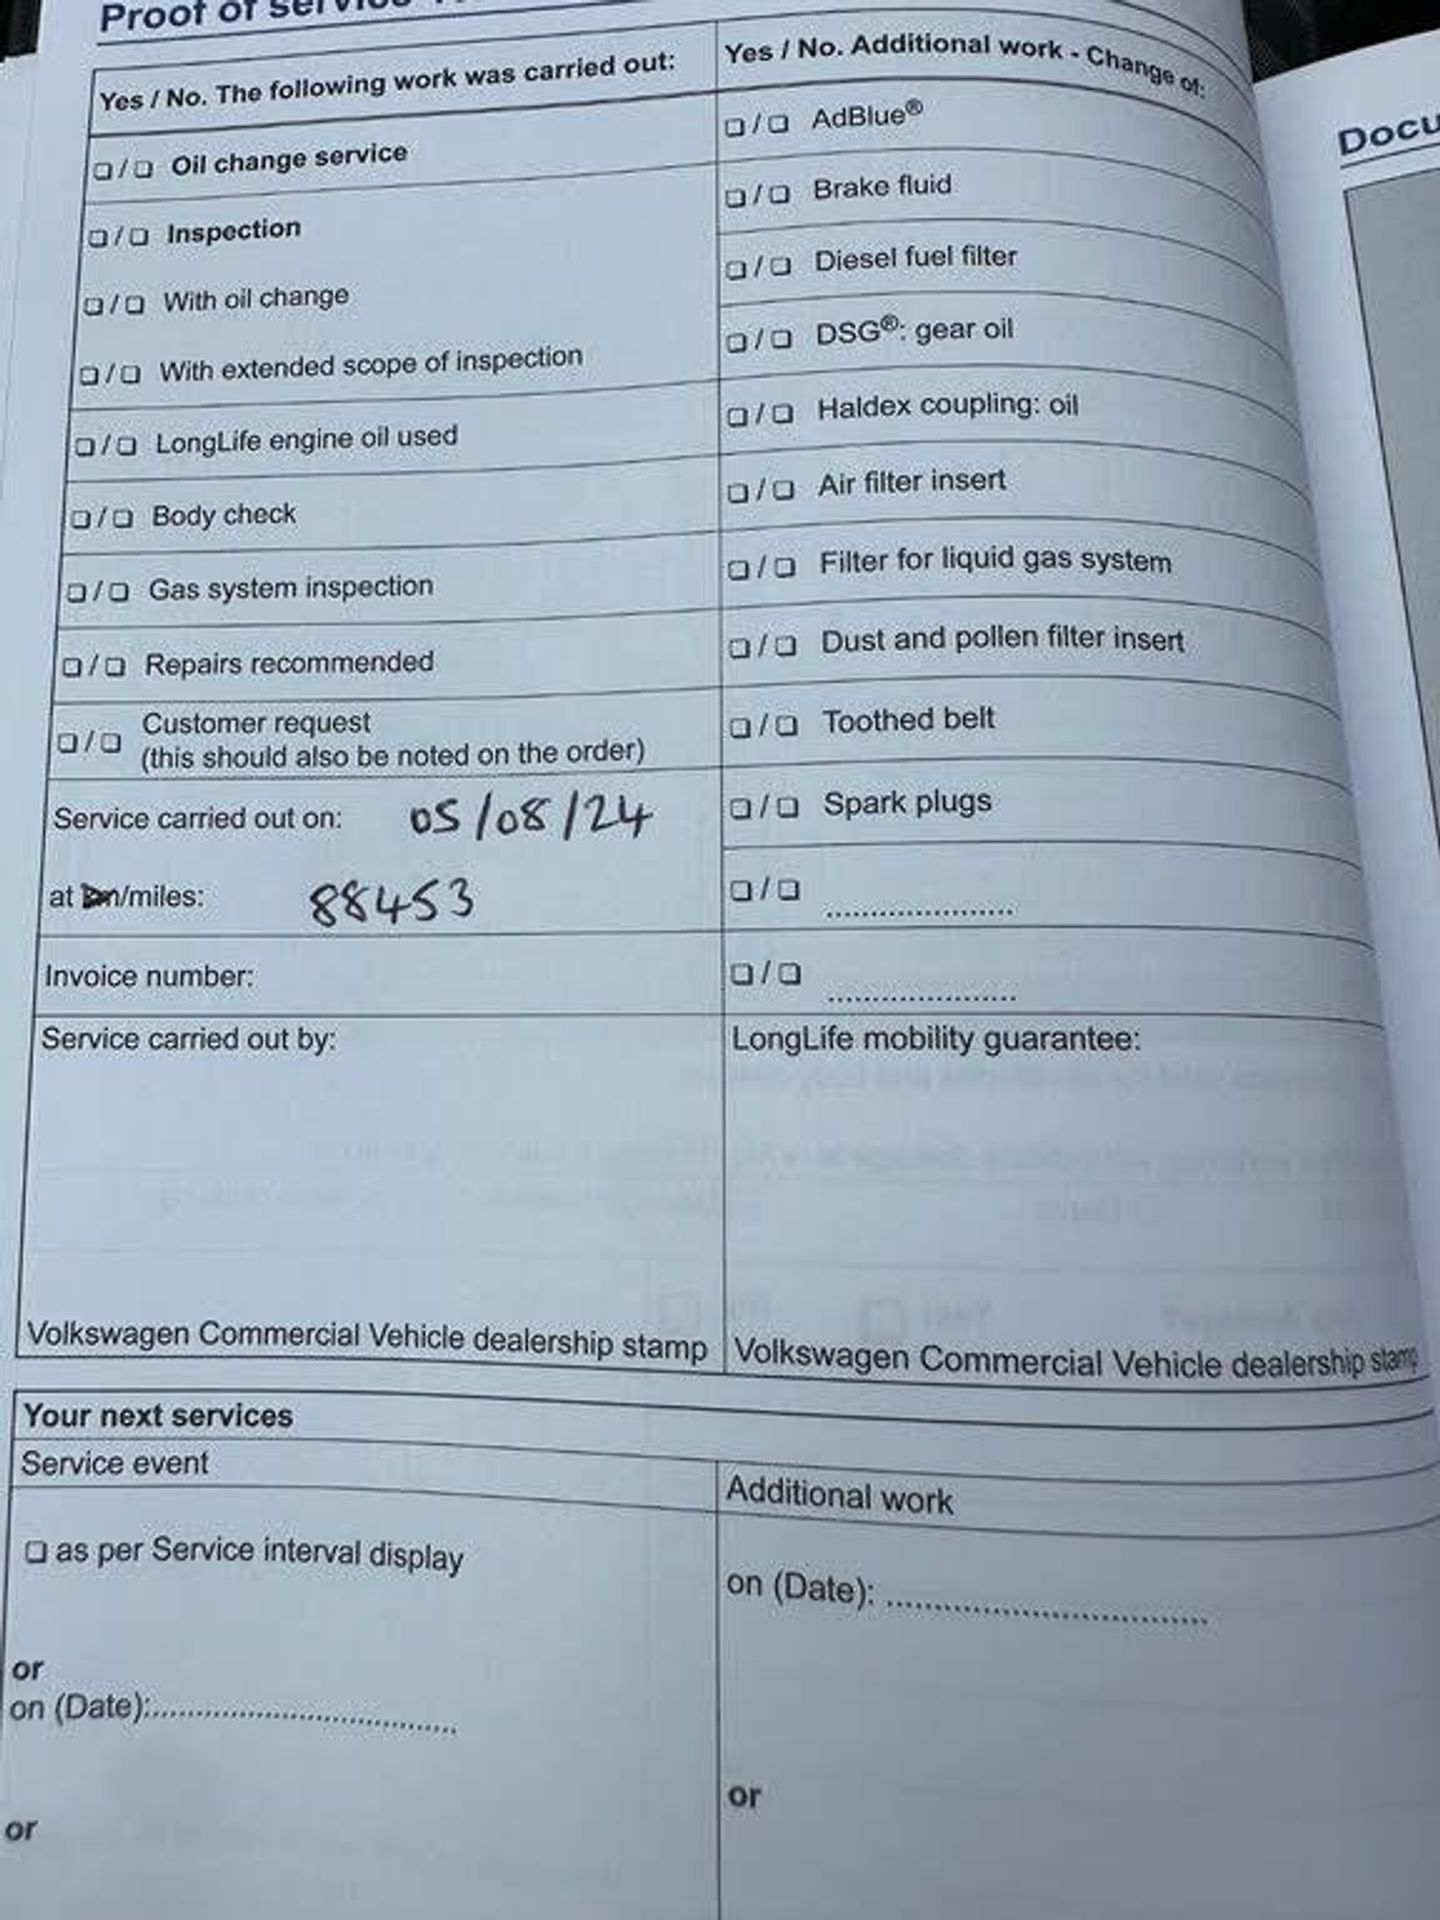 Proof of service
Yes / No. The following work was carried out:
❏ / ❏ Oil change service
❏ / ❏ Inspection
❏ / ❏ With oil change
❏ / ❏ With extended scope of inspection
❏ / ❏ LongLife engine oil used
❏ / ❏ Body check
❏ / ❏ Gas system inspection
❏ / ❏ Repairs recommended
❏ / ❏ Customer request
(this should also be noted on the order)
Service carried out on: 05/08/24
at km/miles: 88453
Invoice number:
Service carried out by:
Volkswagen Commercial Vehicle dealership stamp
Yes / No. Additional work - Change of:
❏ / ❏ AdBlue®
❏ / ❏ Brake fluid
❏ / ❏ Diesel fuel filter
❏ / ❏ DSG®: gear oil
❏ / ❏ Haldex coupling: oil
❏ / ❏ Air filter insert
❏ / ❏ Filter for liquid gas system
❏ / ❏ Dust and pollen filter insert
❏ / ❏ Toothed belt
❏ / ❏ Spark plugs
❏ / ❏ .....................
❏ / ❏ .....................
LongLife mobility guarantee:
Volkswagen Commercial Vehicle dealership stamp
Your next services
Service event
❏ as per Service interval display
or
on (Date):...................................
or
Additional work
on (Date): ...................................
or
Docu